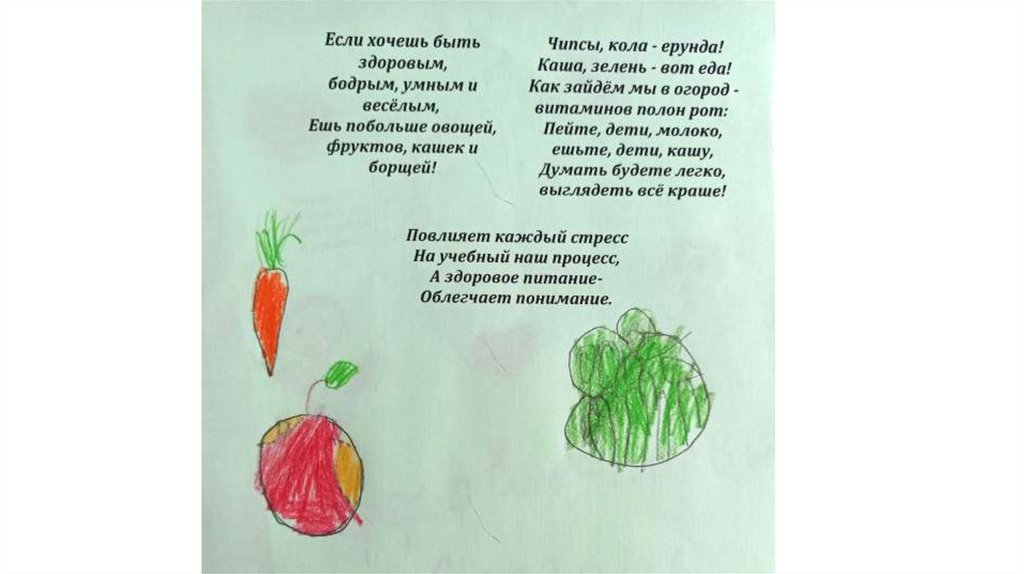 Если хочешь быть
здоровым,
бодрым, умным и
весёлым,
Ешь побольше овощей,
фруктов, кашек и
борщей!
Чипсы, кола - ерунда!
Каша, зелень - вот еда!
Как зайдём мы в огород -
витаминов полон рот:
Пейте, дети, молоко,
ешьте, дети, кашу,
Думать будете легко,
выглядеть всё краше!
Повлияет каждый стресс
На учебный наш процесс,
А здоровое питание-
Облегчает понимание.